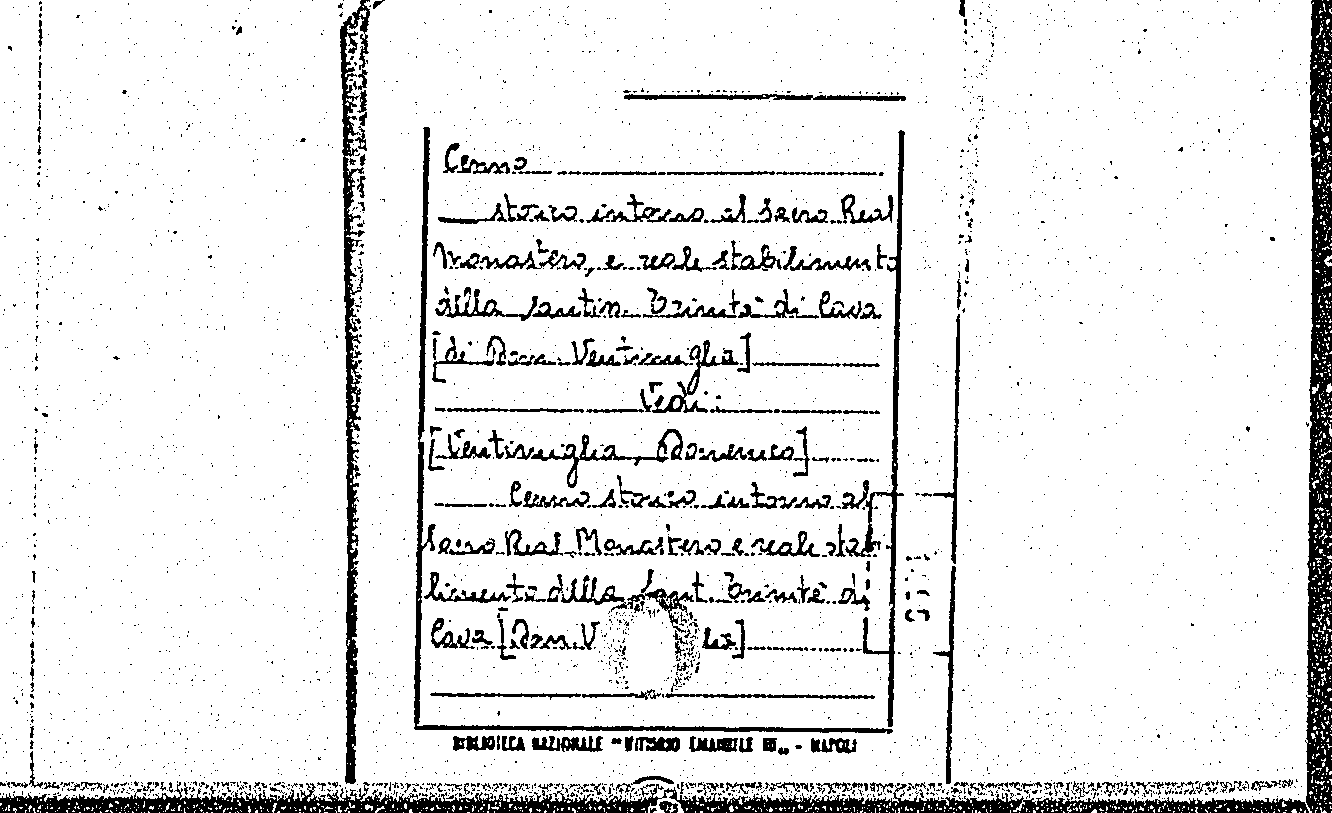 Cenno
storico intorno al Sacro Real
Monastero, e reale stabilimento
della santin. Trinità di Cava
[di Dom. Ventimiglia]
Vedi:
[Ventimiglia, Domenico]
Cenno storico intorno al
Sacro Real Monastero e reale stabi
limento della Sant. Trinità di
Cava [Dom. V lia]
BIBLIOTECA NAZIONALE "VITTORIO EMANUELE III" - NAPOLI